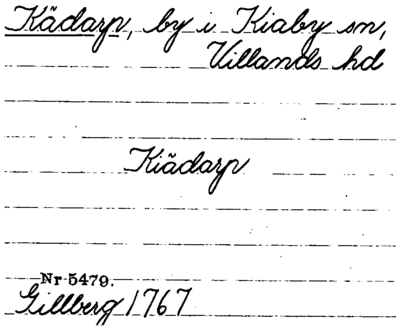 Kädarp, by i Kiaby sn,
Villands hd
Kiädarp
Nr 5479.
Gillberg 1767